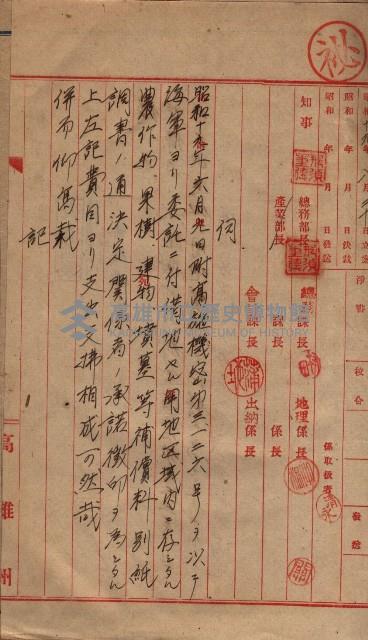 秘
昭和 年 月 日立案
昭和 年 月 日決裁
昭和 年 月 日發送
淨書
校合
發送
知事
總務部長
產業部長
總務課長
課長
會計課長
地理係長
係長
出納係長
係取扱者
伺
昭和十九年六月九日附高施機密第三一二六号ノヲ以テ
海軍ヨリ委託ニ付借地セル用地区域内ニ存シタル
農作物、果樹、建物、墳墓等補償料別紙
調書ノ通決定関係者ノ承諾徴印ヲ為シタル
上左記費目ヨリ支出支拂相成可然哉
併而仰高裁
記
高雄州
高雄市立歷史博物館
KAOHSIUNG MUSEUM OF HISTORY